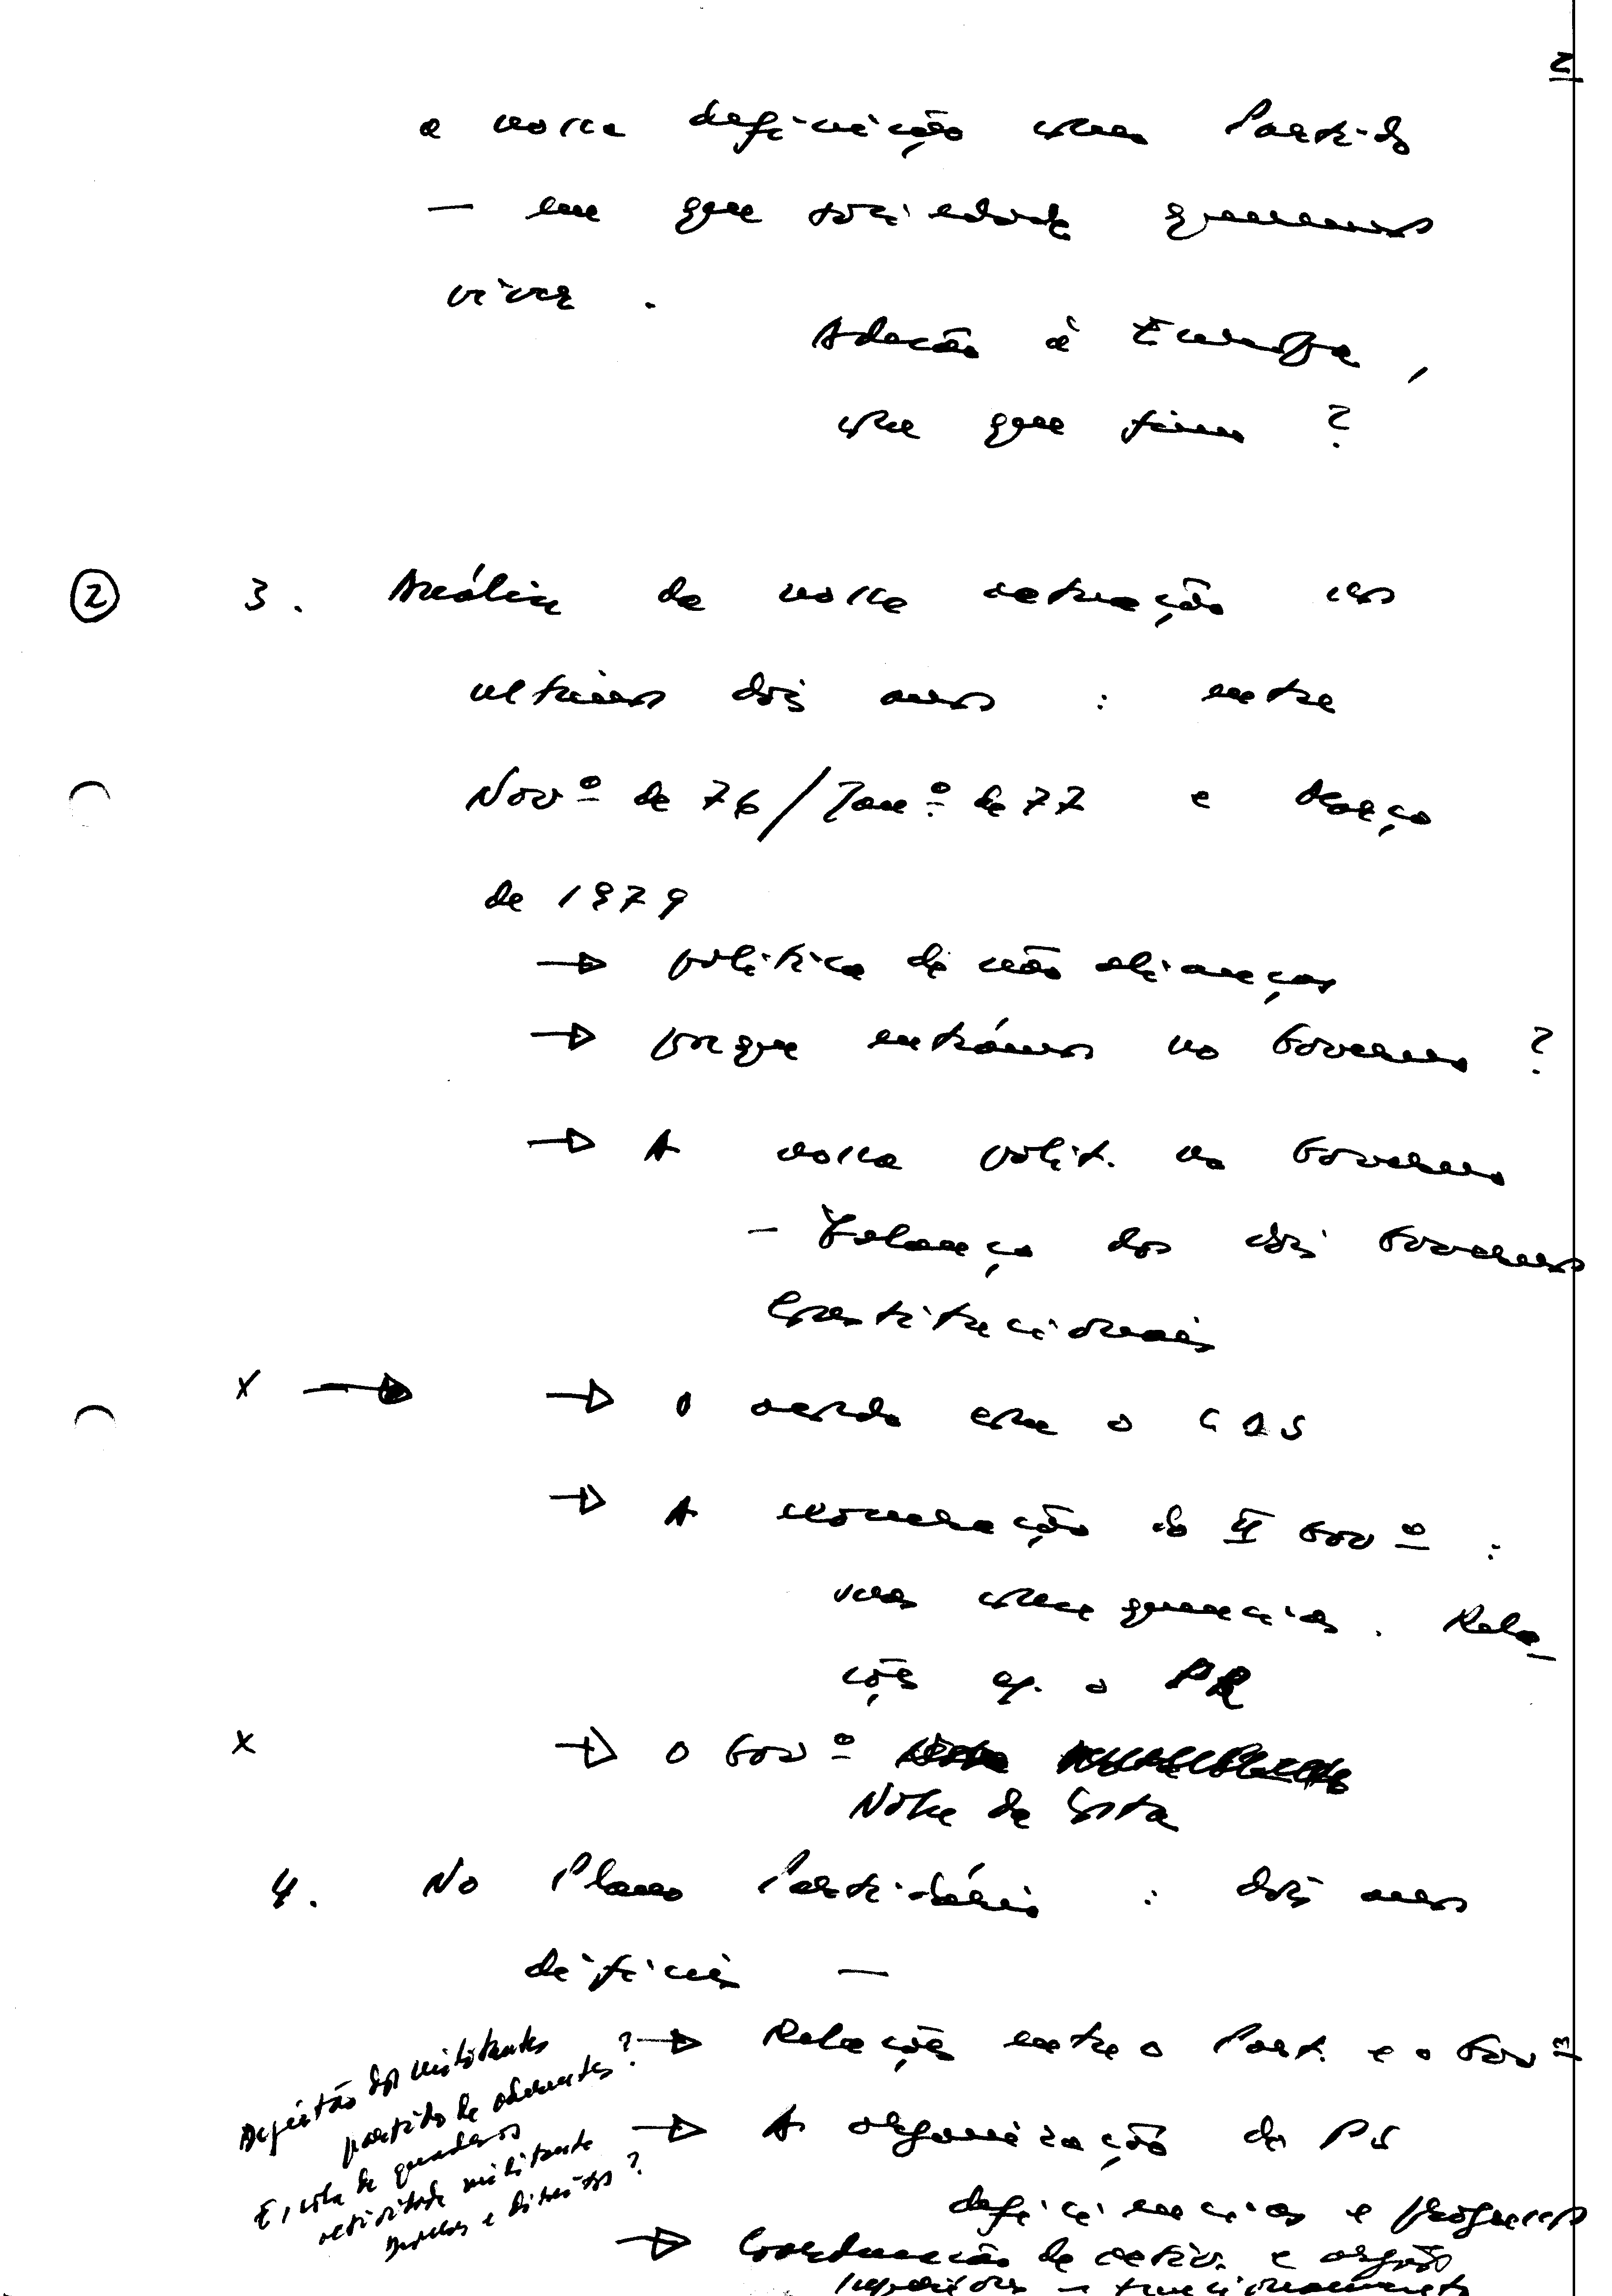 2
a nossa definição como Partido
— em que sociedade queremos
viver .
Adesão à Europa,
com que fim ?
② 3. Análise da nossa actuação nos
ultimos dois anos : entre
Novº de 76 / Janº de 77 e Março
de 1979
→ politica de não alianças
→ porque entrámos no Governo ?
→ A nossa polit. no Governo
— Balanço dos dois Governos
Constitucionais
x → → O acordo com o CDS
→ A exoneração do II Govº :
suas consequencias . Rela_
ções c/. o PR
x → O Govº
Nobre da Costa
4. No Plano Partidário : dois anos
dificeis —
→ Relações entre o Part. e o Govº
→ A organização do PS
deficiencias e progressos
→ Coordenação de activ. e orgãos
superiores — funcionamento
dos militantes
partido de aderentes ?
Escola de quadros
actividade militante
Deveres e Direitos ?